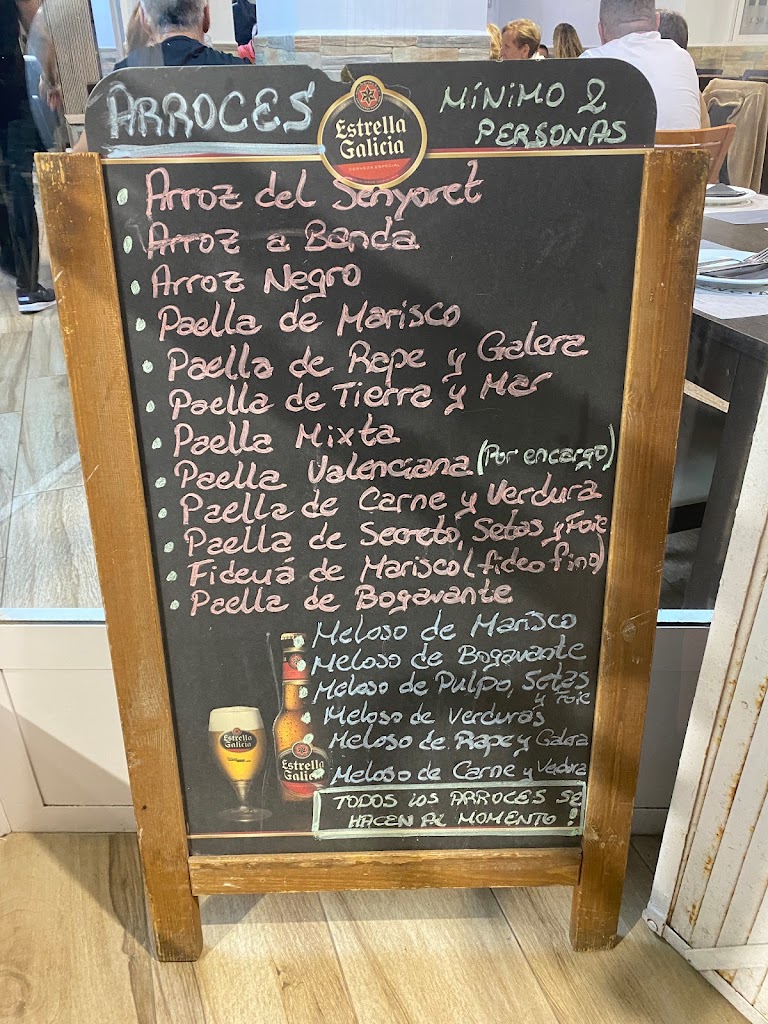 ARROCES
Estrella
Galicia
CERVEZA ESPECIAL
MÍNIMO 2
PERSONAS
• Arroz del Senyoret
• Arroz a Banda
• Arroz Negro
• Paella de Marisco
• Paella de Rape y Galera
• Paella de Tierra y Mar
• Paella Mixta
• Paella Valenciana (Por encargo)
• Paella de Carne y Verdura
• Paella de Secreto, Setas y Foie
• Fideuá de Marisco (fideo fino)
• Paella de Bogavante
• Meloso de Marisco
• Meloso de Bogavante
• Meloso de Pulpo, Setas
y Foie
• Meloso de Verduras
• Meloso de Rape y Galera
• Meloso de Carne y Verdura
Estrella
Galicia
Estrella
Galicia
TODOS LOS ARROCES SE
HACEN AL MOMENTO!